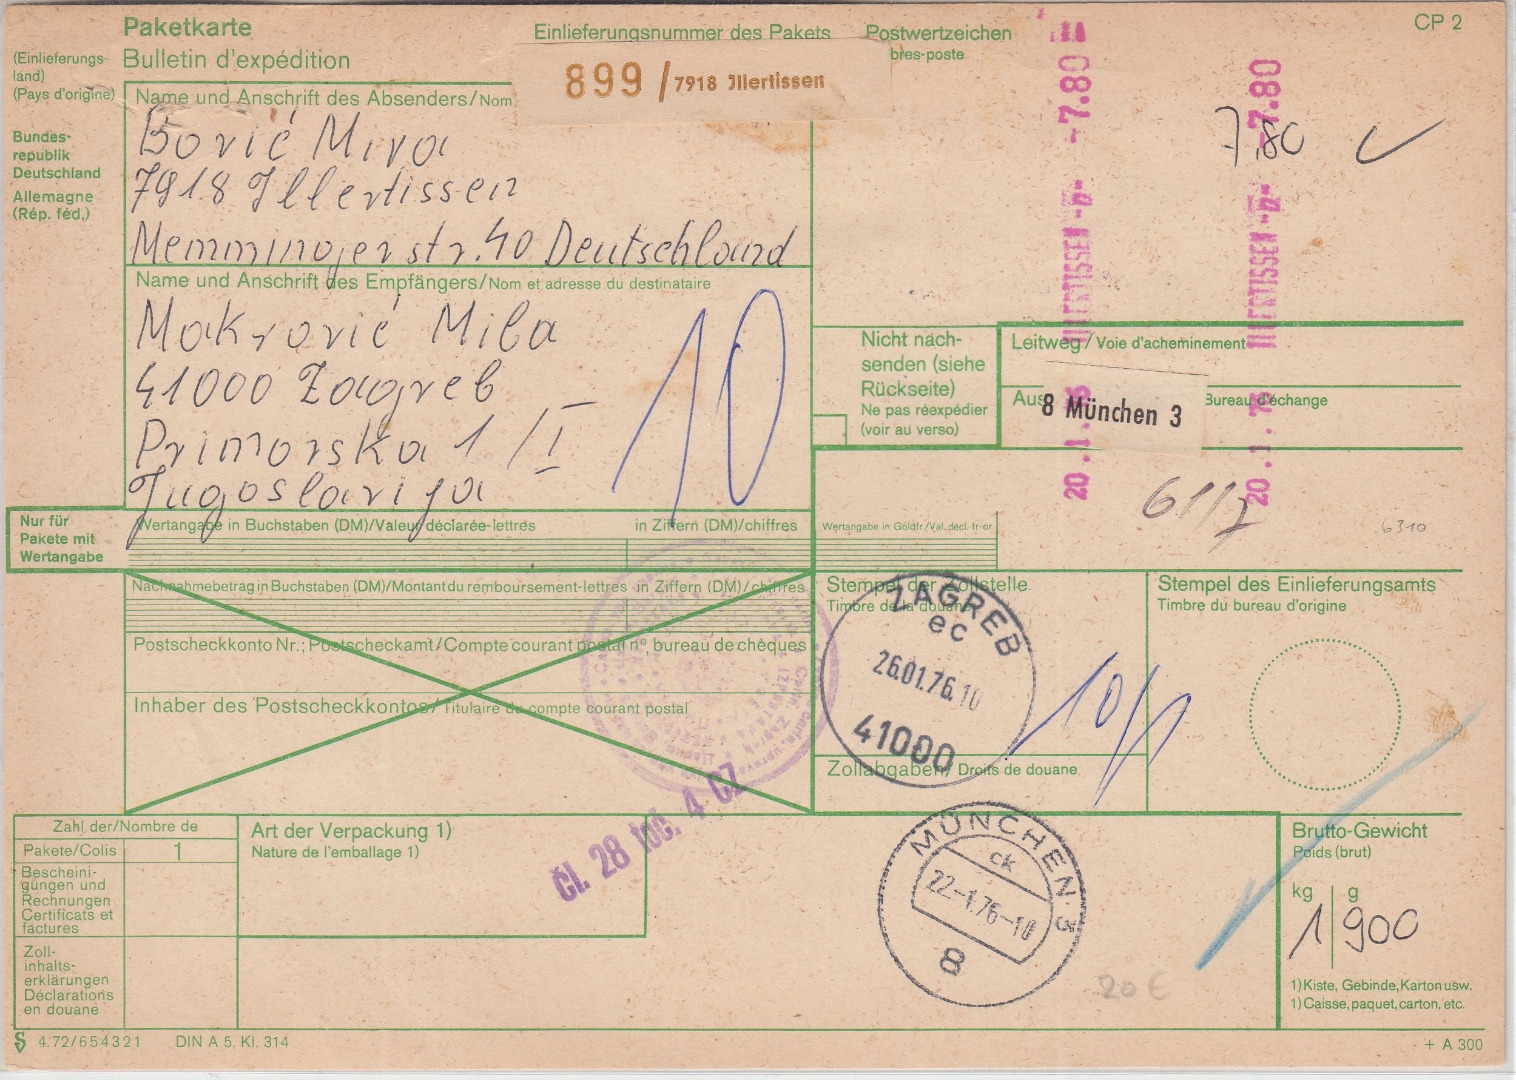 Paketkarte
Bulletin d'expédition
Einlieferungsnummer des Pakets
Postwertzeichen
bres-poste
CP 2
(Einlieferungs-
land)
(Pays d'origine)
Bundes-
republik
Deutschland
Allemagne
(Rép. féd.)
899 / 7918 Illertissen
-7.80
-7.80
7,80
Name und Anschrift des Absenders/Nom
Borić Mira
7918 Illertissen
Memmingerstr. 40 Deutschland
ILLERTISSEN -b-
ILLERTISSEN -b-
20.1.76
20.1.76
Name und Anschrift des Empfängers/Nom et adresse du destinataire
Makrović Mila
41000 Zagreb
Primorska 1 /I
Jugoslavija
10
Nicht nach-
senden (siehe
Rückseite)
Ne pas réexpédier
(voir au verso)
Leitweg/Voie d'acheminement
Aus
Bureau d'échange
8 München 3
6310
Nur für
Pakete mit
Wertangabe
Wertangabe in Buchstaben (DM)/Valeur déclarée-lettres
in Ziffern (DM)/chiffres
Wertangabe in Goldfr./Val. décl. fr-or
Nachnahmebetrag in Buchstaben (DM)/Montant du remboursement-lettres in Ziffern (DM)/chiffres
Postscheckkonto Nr.; Postscheckamt/Compte courant postal n° bureau de chèques
Inhaber des Postscheckkontos/Titulaire du compte courant postal
Stempel der Zollstelle
Timbre de la douane
ZAGREB
ec
26.01.76.10
41000
10
Zollabgaben/Droits de douane
Stempel des Einlieferungsamts
Timbre du bureau d'origine
Čl. 28 toč. 4 CZ
Zahl der/Nombre de
Pakete/Colis
1
Bescheini-
gungen und
Rechnungen
Certificats et
factures
Zoll-
inhalts-
erklärungen
Déclarations
en douane
Art der Verpackung 1)
Nature de l'emballage 1)
MÜNCHEN 3
ck
22.-1.76-10
8
20 €
Brutto-Gewicht
Poids (brut)
kg
g
1
900
1) Kiste, Gebinde, Karton usw.
1) Caisse, paquet, carton, etc.
4.72/654321
DIN A 5, Kl. 314
+ A 300